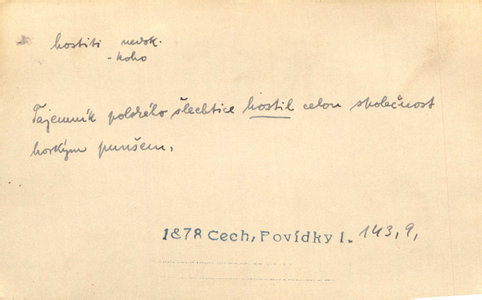 hostiti nedok.
- koho
Tajemník polského šlechtice hostil celou společnost
horkým punšem.
1878 Cech, Povídky I. 143, 9,